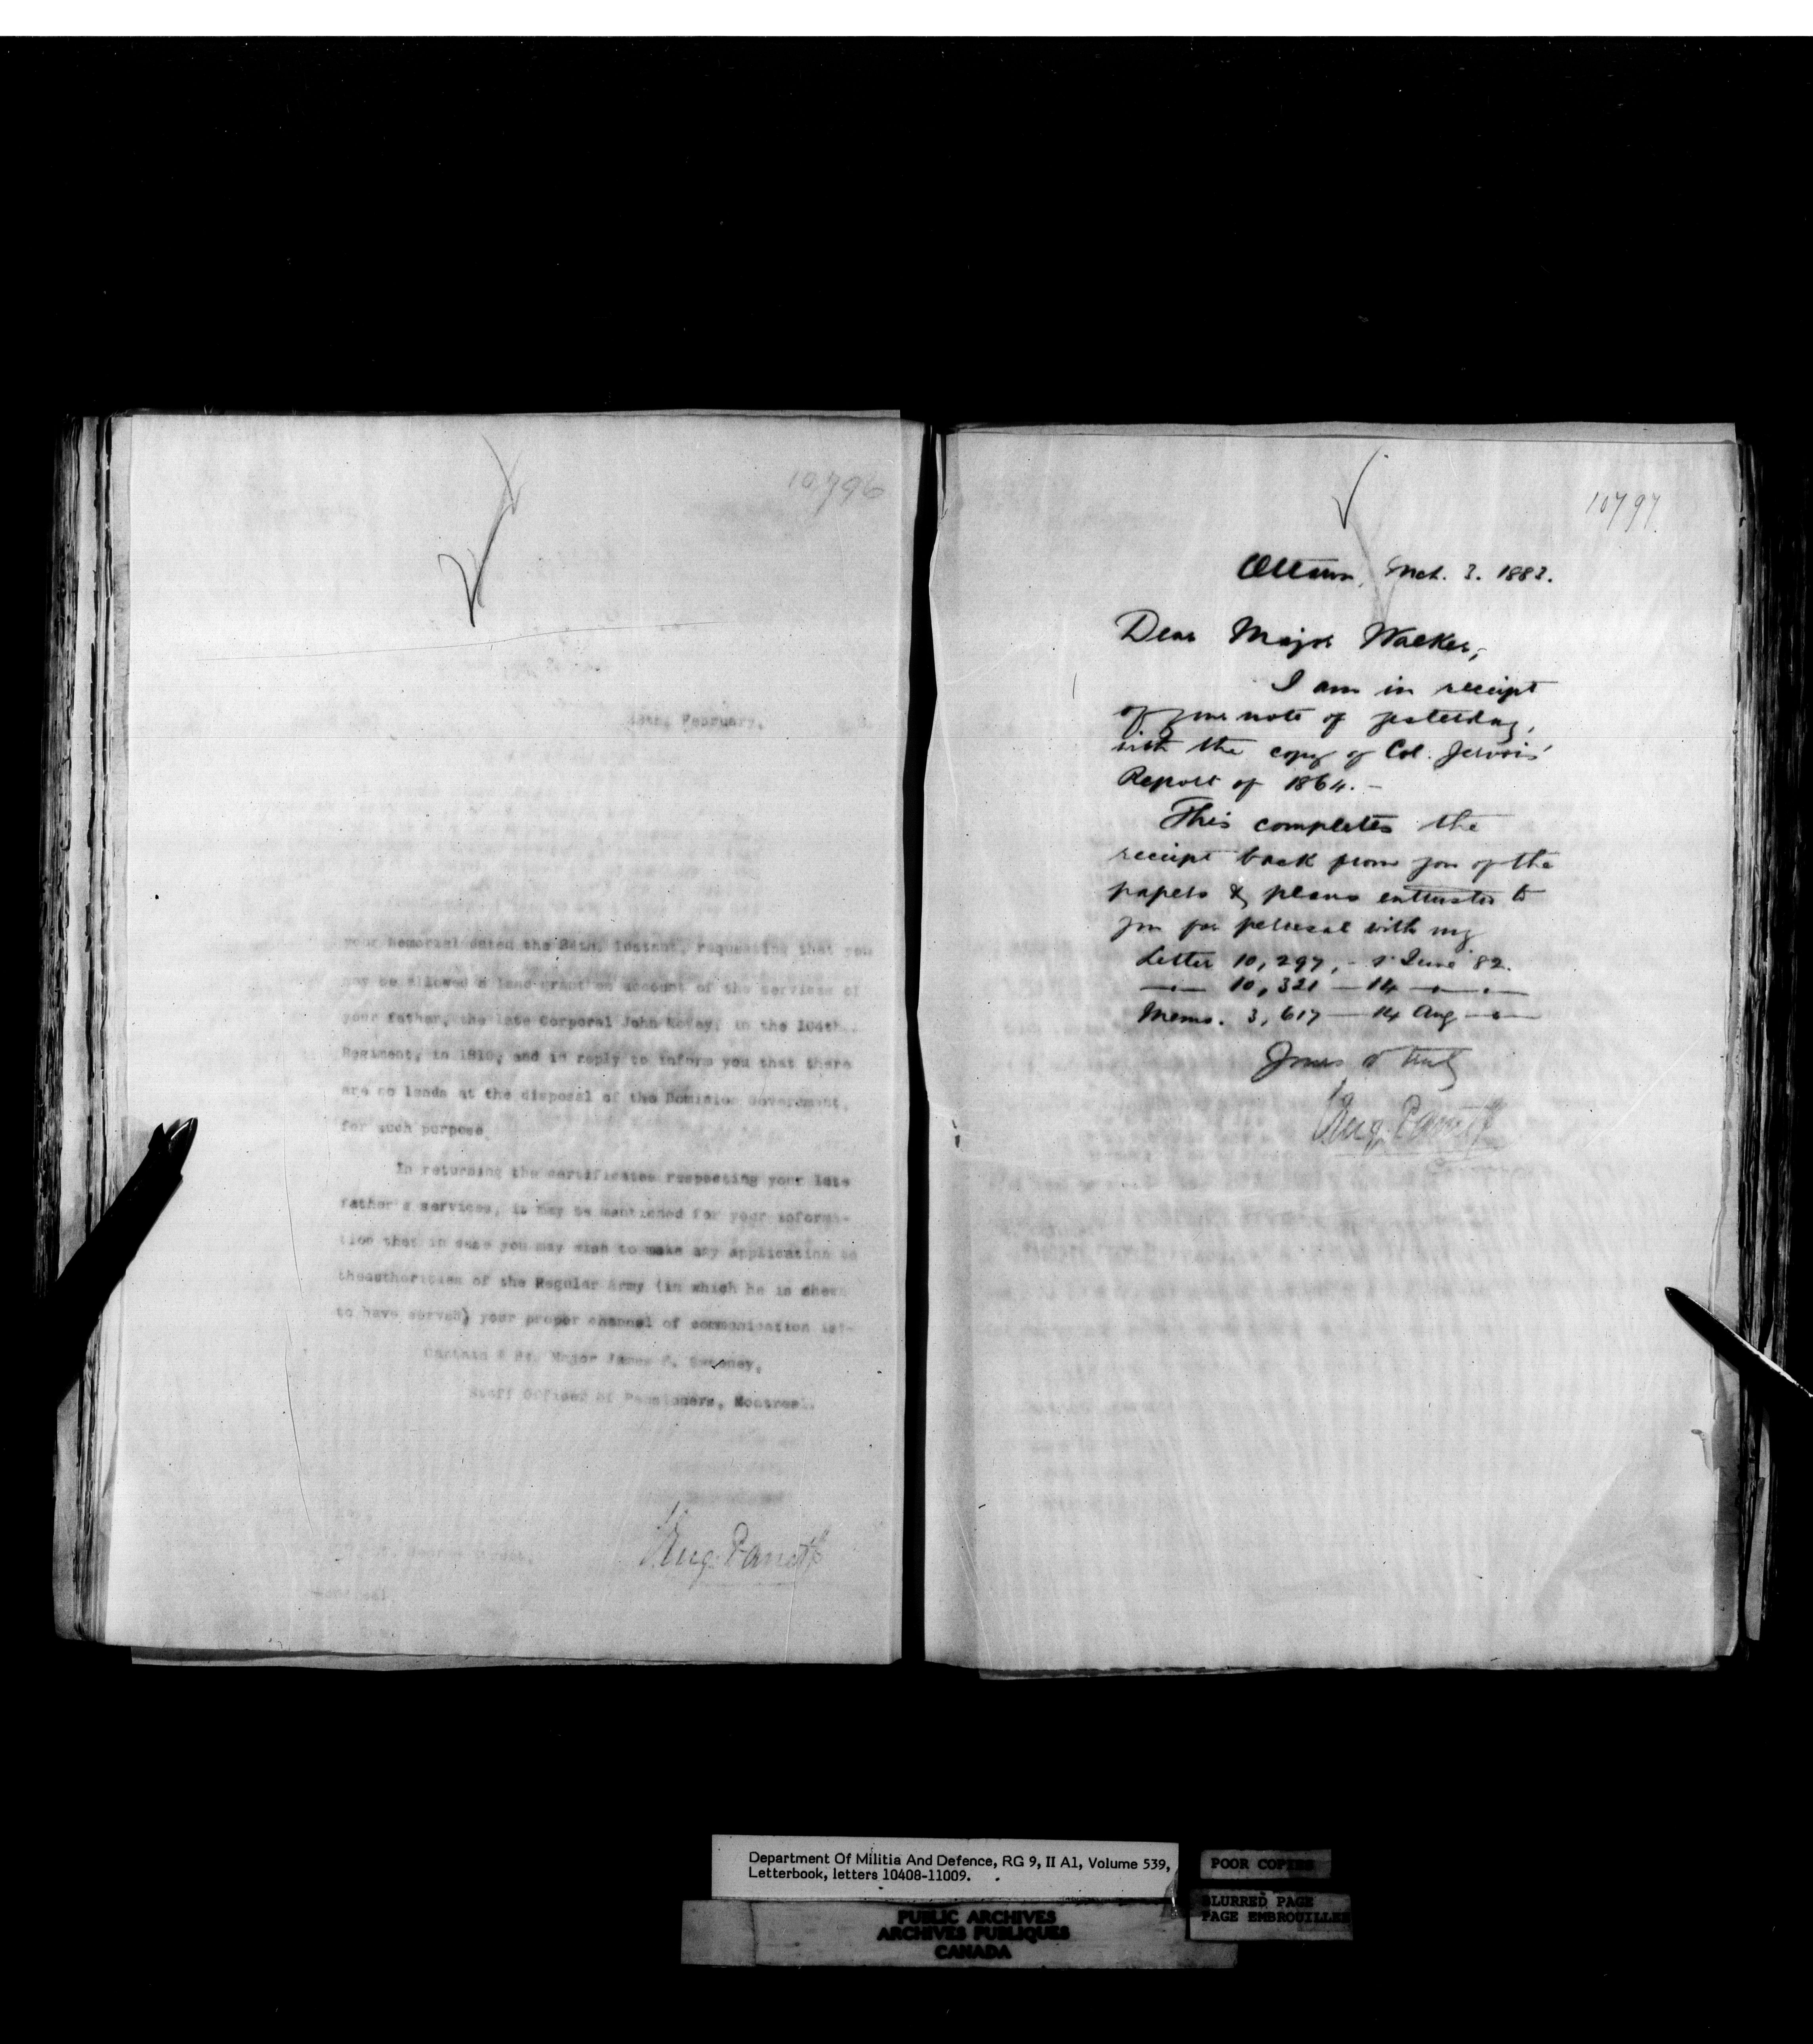 10796
February,
your memorial dated the 24th. instant, requesting that you
may be allowed a land-grant on account of the services of
your father, the late Corporal John in the 104th.
Regiment, in 1810, and in reply to inform you that there
are no lands at the disposal of the Dominion Goverment,
for such purpose.
In returning the certificates respecting your late
father's services, it may be mentioned for your informa-
tion that in case you may wish to make any application to
theauthorities of the Regular Army (in which he is shewn
to have served) your proper channel of communication is:-
Captain & Bt. Major James F. Sweeney,
Staff Officer of Pensioners, Montreal.
George Street,
Montreal
Eug. Panet
10797.
Ottawa, Mch. 3. 1883.
Dear Major Walker,
I am in receipt
of your note of yesterday,
with the copy of Col. Jervois'
Report of 1864. -
This completes the
receipt back from you of the
papers & plans entrusted to
you for perusal with my
Letter 10,297, - June 82.
—"— 10,321 — 14 —"—"—
Memo. 3,617 — 14 Aug —"—
Yours truly
Eug. Panet
Department Of Militia And Defence, RG 9, II A1, Volume 539,
Letterbook, letters 10408-11009.
POOR COPIES
BLURRED PAGE
PAGE EMBROUILLEE
PUBLIC ARCHIVES
ARCHIVES PUBLIQUES
CANADA